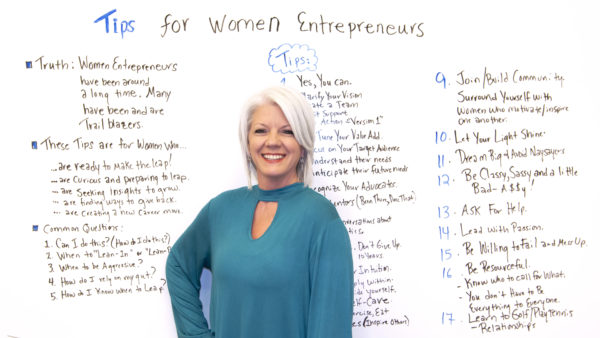 Tips for Women Entrepreneurs
Truth: Women Entrepreneurs
have been around
a long time. Many
have been and are
Trail blazers.
These Tips are for Women Who...
...are ready to make the leap!
...are curious and preparing to leap.
...are seeking insights to grow.
...are finding ways to give back.
...are creating a new career move.
Common Questions:
1. Can I do this? (How do I do this?)
2. When to "Lean-In" or "Lean-B
3. When to be Aggresive?
4. How do I rely on my gut?
5. How do I know when to Leap?
Tips:
Yes, You can.
Clarify Your Vision
ate a Team
Support
Action = "Version 1"
Tune Your Value Add.
cus on Your Target Audience
nderstand their needs
nticipate their future needs
cognize Your Advocates.
entors (Been There, Done That)
nversations about
Don't Give Up.
10 years
r Intuition.
ply within.
ide yourself.
elf-Care
ercise, Eat
es (Inspire Others)
9. Join/Build Community.
Surround Yourself with
Women who motivate/inspire
one another.
10. Let Your Light Shine!
11. Dream Big & Avoid Naysayers
12. Be Classy, Sassy and a little
Bad-A$$y!
13. Ask For Help.
14. Lead with Passion.
15. Be Willing to Fail and Mess Up.
16 Be Resourceful.
- Know who to call for What.
- You don't Have to Be
Everything to Everyone.
17. Learn to Golf/Play Tennis
- Relationships